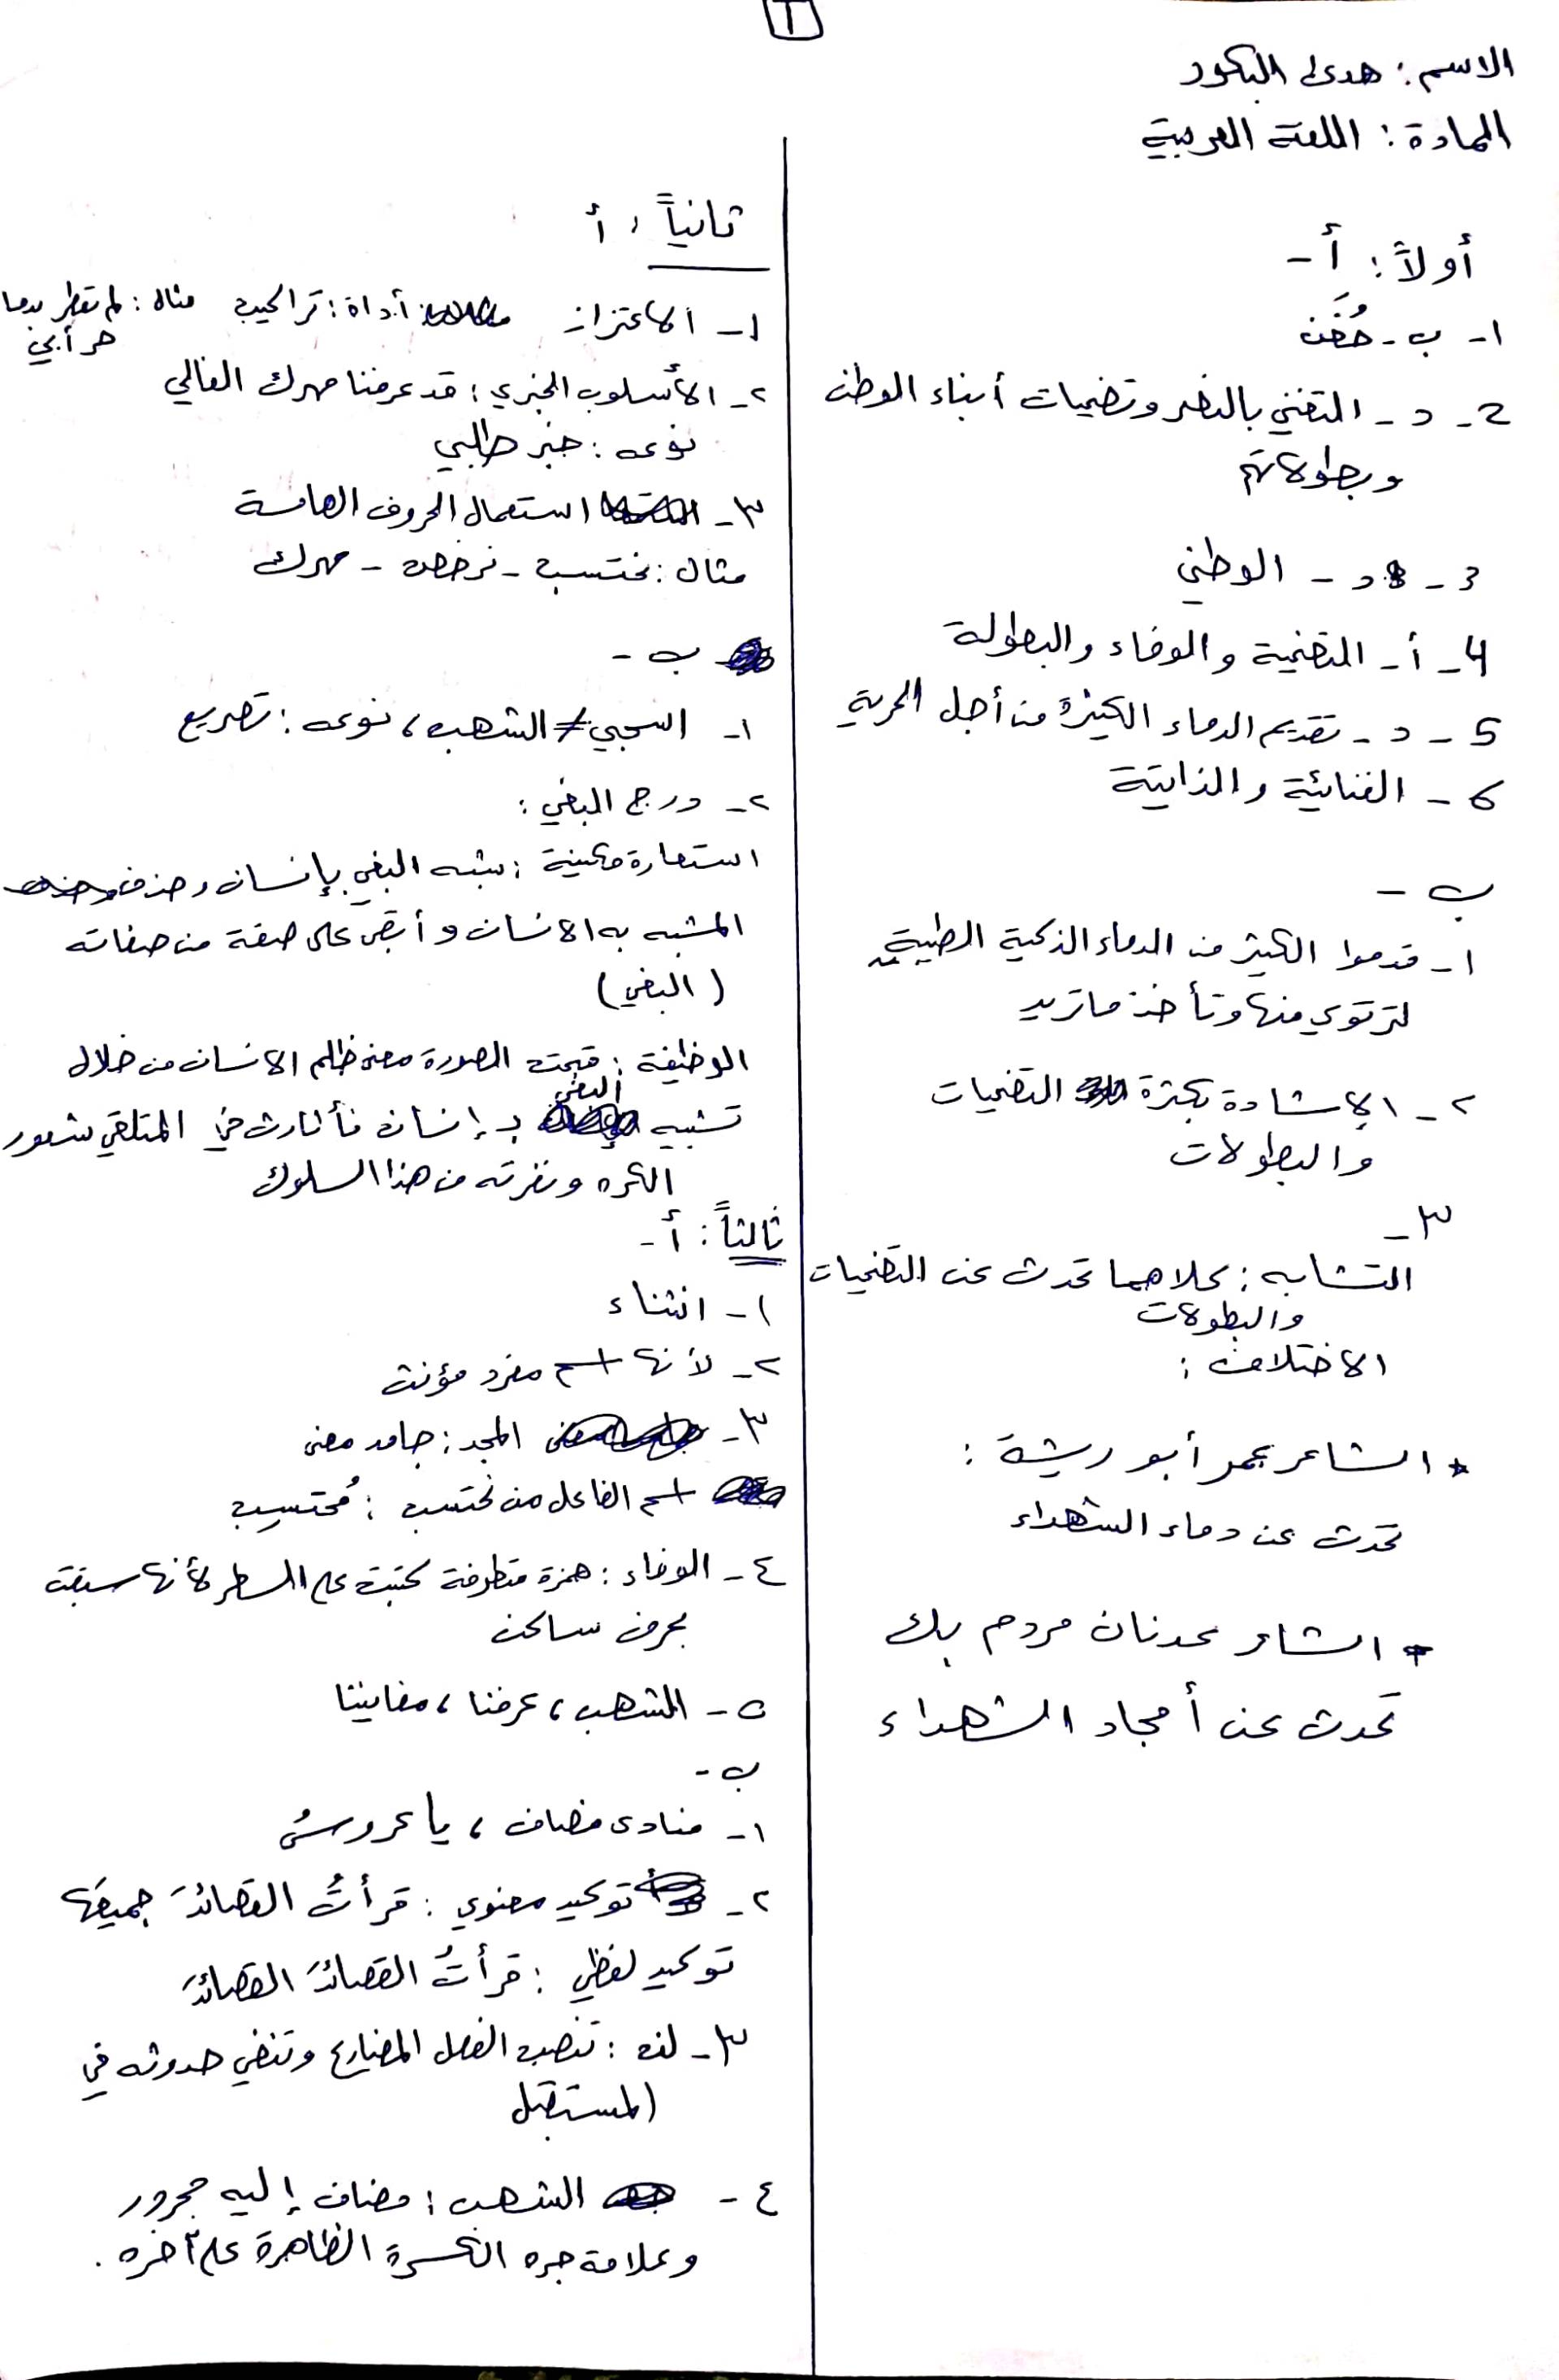 1
الاسم: هدى البكور
المادة: اللغة العربية
أولاً: أ -
١- ب - حُفَن
2- د - التغني بالنصر وتضحيات أبناء الوطن
وبطولاتهم
3- د - الوطني
4- أ - التضحية والوفاء والبطولة
5- د - تقديم الدماء الكثيرة من أجل الحرية
6- الغنائية والذاتية
ب -
١- قدموا الكثير من الدماء الذكية الطيبة
لترتوي منها وتأخذ ما تريد
٢- الإشادة بكثرة التضحيات
والبطولات
٣-
التشابه: كلاهما تحدث عن التضحيات
والبطولات
الاختلاف:
* الشاعر عمر أبو ريشة:
تحدث عن دماء الشهداء
* الشاعر عدنان مردم بك
تحدث عن أمجاد الشهداء
ثانياً: أ
١- الاعتزاز أداة: تراكيب مثال: لم تعطر بدما
حر أبي
٢- الأسلوب الخبري: قد عرفنا مهرك الغالي
نوعه: خبر طلبي
٣- استعمال الحروف الهامسة
مثال: نحتسب - نرخص - مهرك
ب -
١- اسحبي ≠ الشهب، نوعه: تصريع
٢- درج البغي:
استعارة مكنية: شبه البغي بإنسان وحذف
المشبه به الانسان وأبقى على صفة من صفاته
(البغي)
الوظيفة: قبحت الصورة معنى ظلم الانسان من خلال
تشبيه البغي بـ إنسان فأثارت في المتلقي شعور
الكره ونفرته من هذا السلوك
ثالثاً: أ -
١- انثناء
٢- لأنها اسم مفرد مؤنث
٣- المجد: جامد معنى
اسم الفاعل من نحتسب: مُحتسِب
٤- الوفاء: همزة متطرفة كتبت على السطر لأنها سبقت
بحرف ساكن
٥- الشهب، عرفنا، مغانينا
ب -
١- منادى مضاف، يا عروسُ
٢- توكيد معنوي: قرأتُ القصائدَ جميعَها
توكيد لفظي: قرأتُ القصائدَ القصائدَ
٣- لن: تنصب الفعل المضارع وتنفي حدوثه في
المستقبل
٤- الشهب: مضاف إليه مجرور
وعلامة جره الكسرة الظاهرة على آخره.